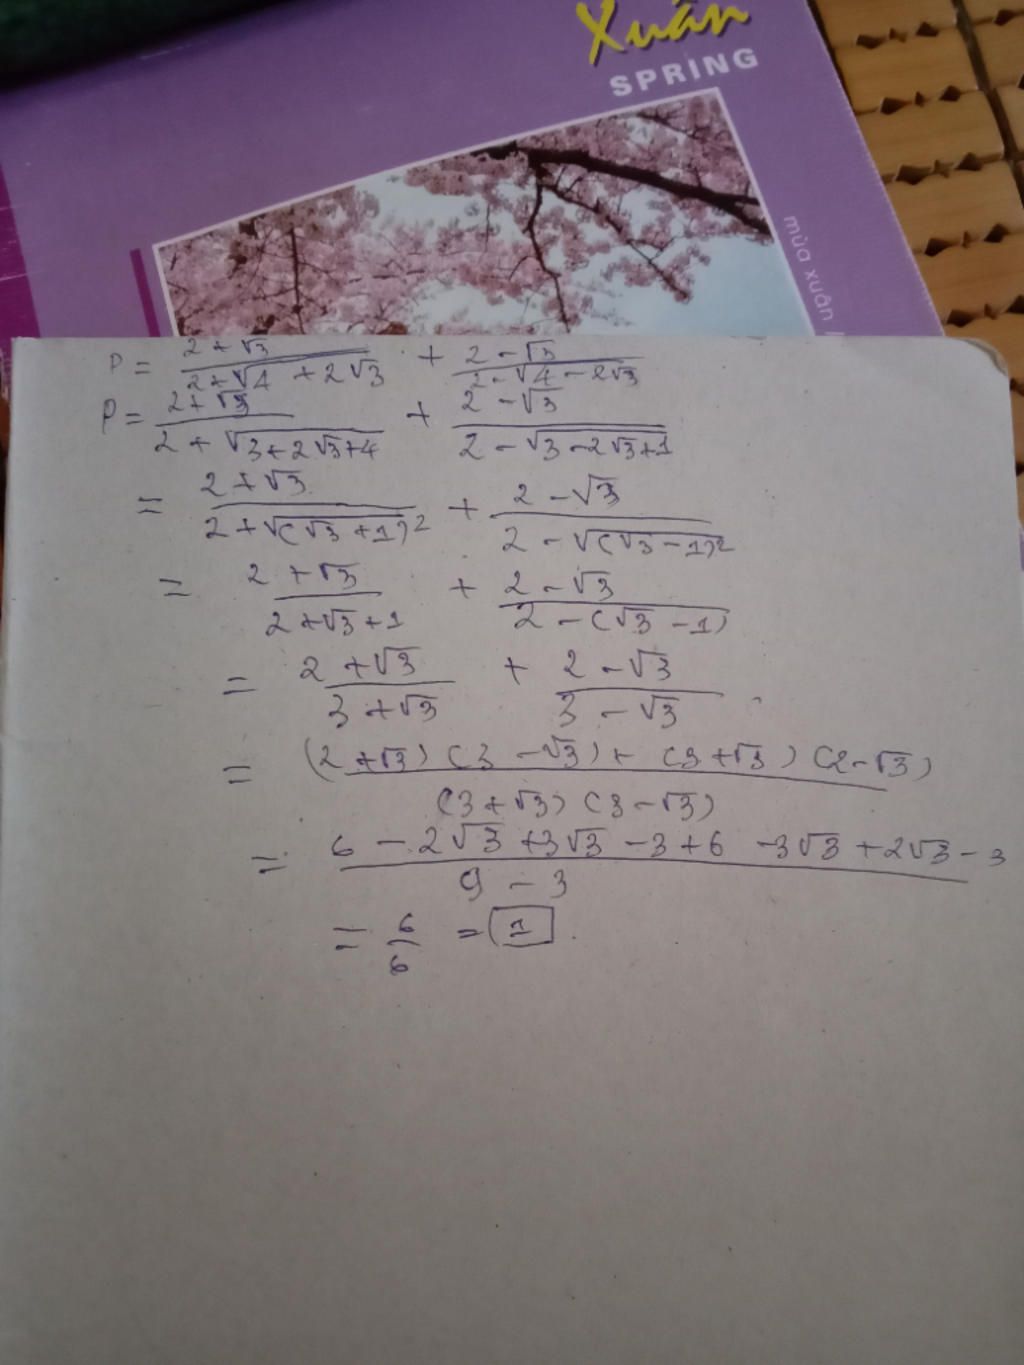 Xuân
SPRING
mùa xuân
P = (2 + √3)/(2 + √4 + 2√3) + (2 - √3)/(2 - √4 - 2√3)
P = (2 + √3)/(2 + √(3 + 2√3 + 1)) + (2 - √3)/(2 - √(3 - 2√3 + 1))
= (2 + √3)/(2 + √(√3 + 1)²) + (2 - √3)/(2 - √(√3 - 1)²)
= (2 + √3)/(2 + √3 + 1) + (2 - √3)/(2 - (√3 - 1))
= (2 + √3)/(3 + √3) + (2 - √3)/(3 - √3)
= ((2 + √3)(3 - √3) + (3 + √3)(2 - √3))/((3 + √3)(3 - √3))
= (6 - 2√3 + 3√3 - 3 + 6 - 3√3 + 2√3 - 3)/(9 - 3)
= 6/6 = 1